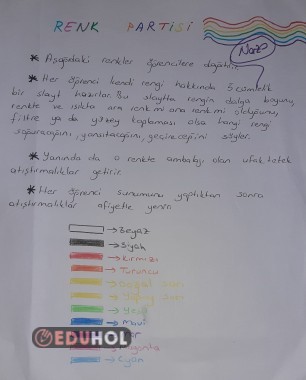 RENK PARTİSİ
Naze
* Aşağıdaki renkler öğrencilere dağıtılır.
* Her öğrenci kendi rengi hakkında 5 cümlelik
bir slayt hazırlar. Bu slaytta rengin dalga boyunu,
renkte ve ışıkta ara renk mi ana renk mi olduğunu,
filtre ya da yüzey kaplaması olsa hangi rengi
soğuracağını, yansıtacağını, geçireceğini söyler.
* Yanında da o renkte ambalajı olan ufak tefek
atıştırmalıklar getirir.
* Her öğrenci sunumunu yaptıktan sonra
atıştırmalıklar afiyetle yenir.
→ Beyaz
→ Siyah
→ Kırmızı
→ Turuncu
→ Yeşil
→ Mavi
→ Magenta
→ Cyan
EDUHOL